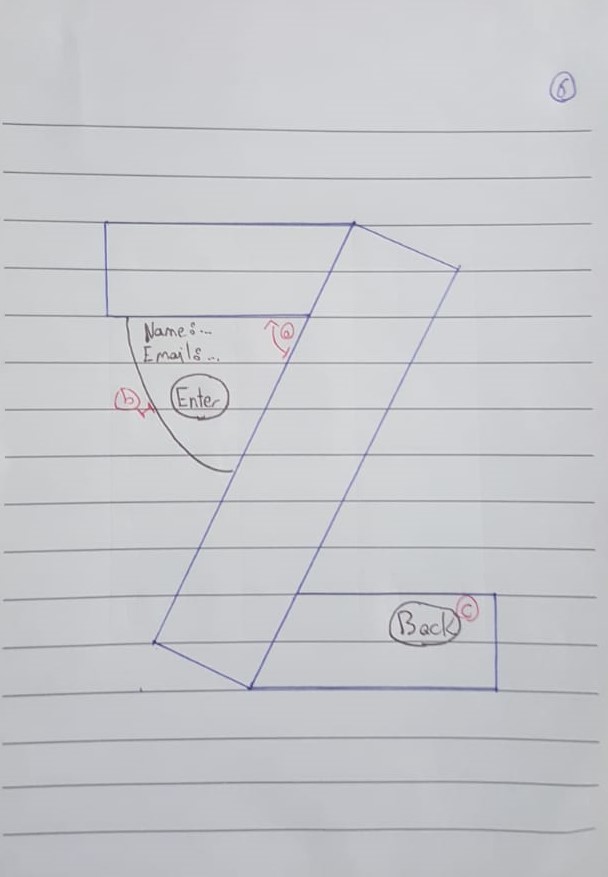 6
Name:...
Email:...
a
b
Enter
c
Back